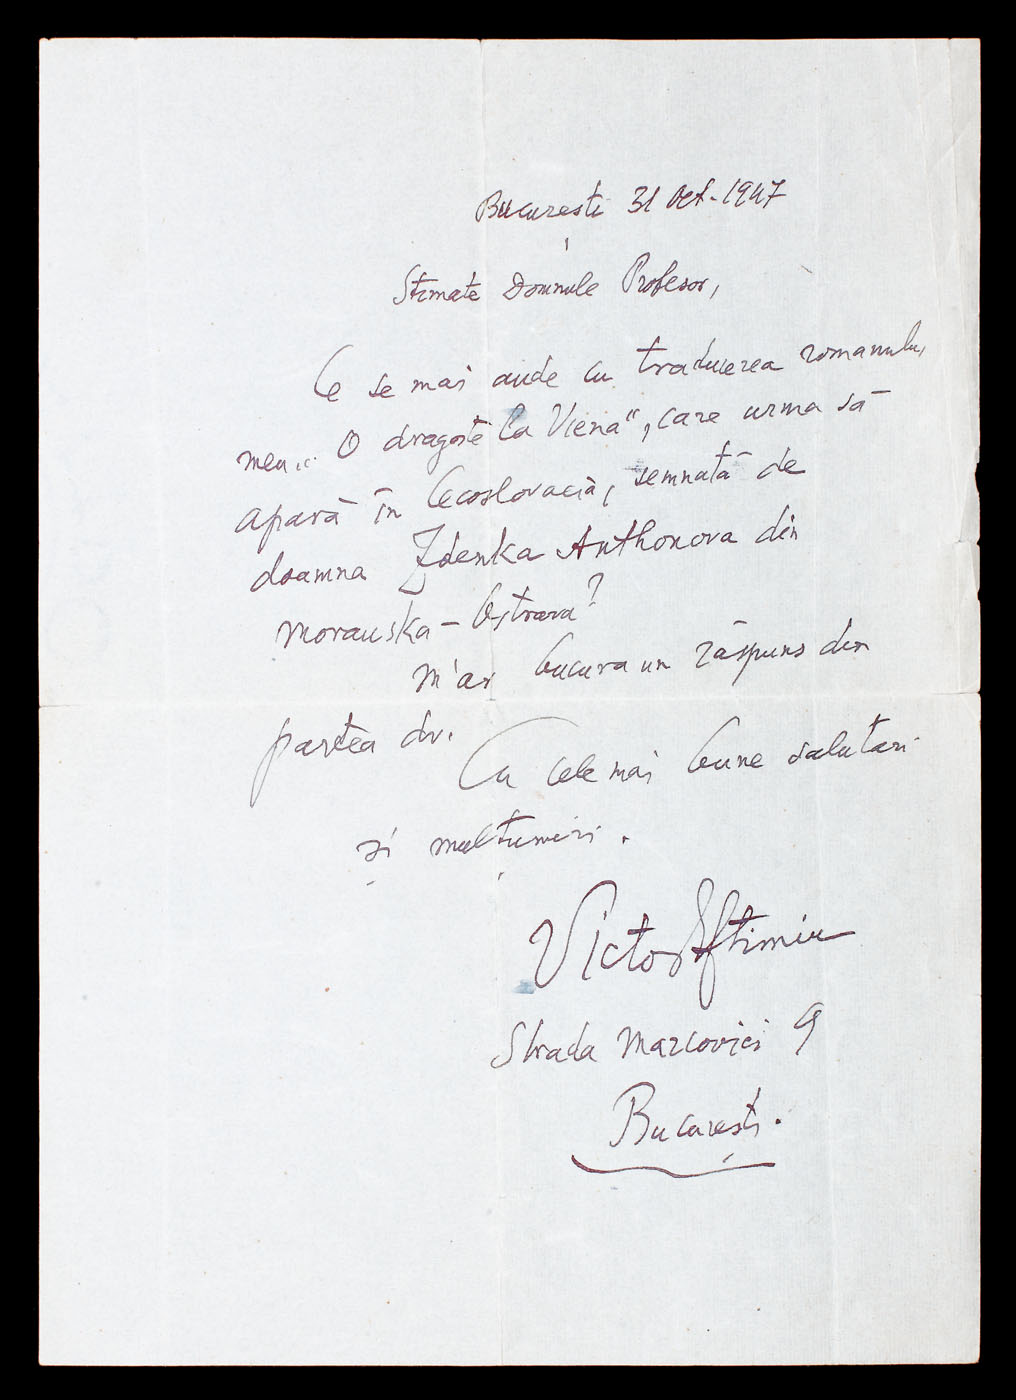 București 31 Oct. 1947
Stimate Domnule Profesor,
Ce se mai aude cu traducerea romanului
meu „O dragoste la Viena", care urma să
apară în Cecoslovacia, semnată de
doamna Zdenka Anthonova din
Moravska-Ostrava?
M'ar bucura un răspuns din
partea dv.
Cu cele mai bune salutări
și mulțumiri.
Victor Eftimiu
Strada Marcovici 9
București.